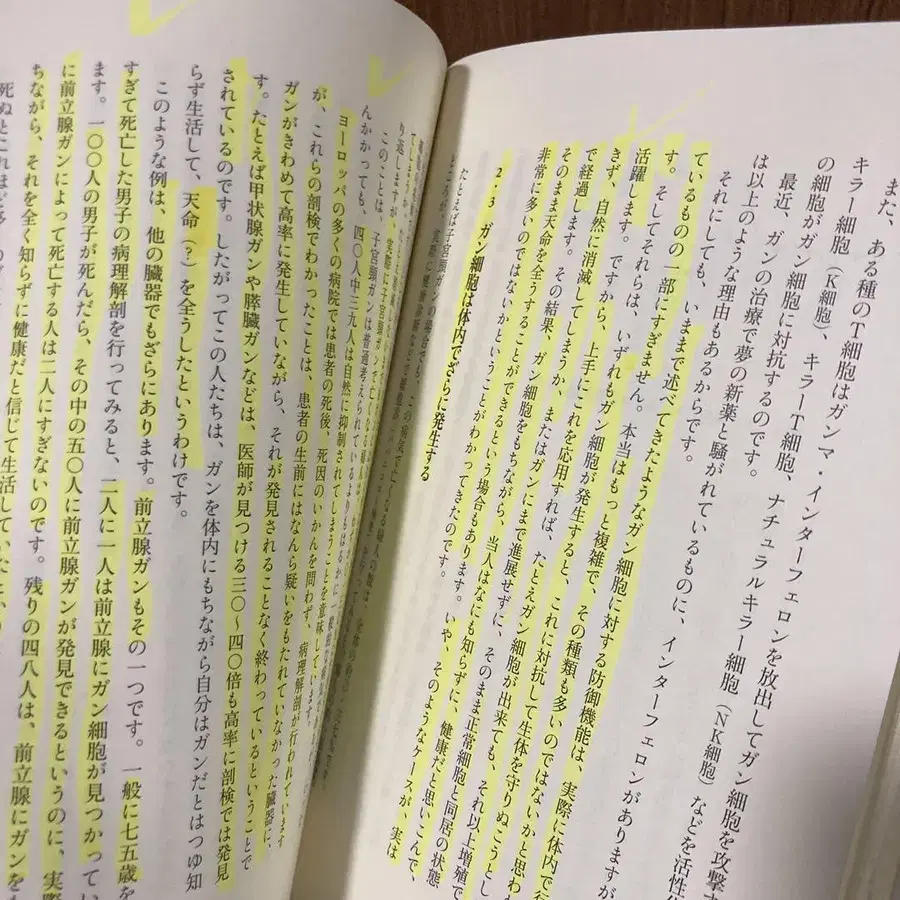 また、ある種のT細胞はガンマ・インターフェロンを放出してガン細胞を攻撃す
キラー細胞（K細胞）、キラーT細胞、ナチュラルキラー細胞（NK細胞）などを活性
の細胞がガン細胞に対抗するのです。
最近、ガンの治療で夢の新薬と騒がれているものに、インターフェロンがありますが
は以上のような理由もあるからです。
それにしても、いままで述べてきたようなガン細胞に対する防御機能は、実際に体内で行
ているものの一部にすぎません。本当はもっと複雑で、その種類も多いのではないかと思わ
す。そしてそれらは、いずれもガン細胞が発生すると、これに対抗して生体を守りぬこうとし
活躍します。ですから、上手にこれを応用すれば、たとえガン細胞が出来ても、それ以上増殖で
きず、自然に消滅してしまうか、またはガンにまで進展せずに、そのまま正常細胞と同居の状態
で経過します。その結果、ガン細胞をもちながら、当人はなにも知らずに、健康だと思いこんで、
そのまま天命を全うすることができるという場合もあります。いや、そのようなケースが、実は
非常に多いのではないかということがわかってきたのです。
2・3 ガン細胞は体内でざらに発生する
たとえば子宮頭ガンの場合でも、この病気で亡くなる婦人の数は、
ところが、実際に健康診断などで
り返しますが、実際に子宮頭ガンで
このことは、子宮頭ガンは普通考えられているよりもはるかに
んかかっても、四〇人中三九人は自然に抑制されてしまうことを意味しています。
ヨーロッパの多くの病院では患者の死後、死因のいかんを問わず、病理解剖が行われています
が、これらの剖検でわかったことは、患者の生前にはなんら疑いをもたれていなかった臓器に、
ガンがきわめて高率に発生していながら、それが発見されることなく終わっているということで
す。たとえば甲状腺ガンや膵臓ガンなどは、医師が見つける三〇〜四〇倍も高率に剖検では発見
されているのです。したがってこの人たちは、ガンを体内にもちながら自分はガンだとはつゆ知
らず生活して、天命（？）を全うしたというわけです。
このような例は、他の臓器でもざらにあります。前立腺ガンもその一つです。一般に七五歳を
すぎて死亡した男子の病理解剖を行ってみると、二人に一人は前立腺にガン細胞が見つかってい
ます。一〇〇人の男子が死んだら、その中の五〇人に前立腺ガンが発見できるというのに、実際
に前立腺ガンによって死亡する人は二人にすぎないのです。残りの四八人は、前立腺にガンを
ちながら、それを全く知らずに健康だと信じて生活していた